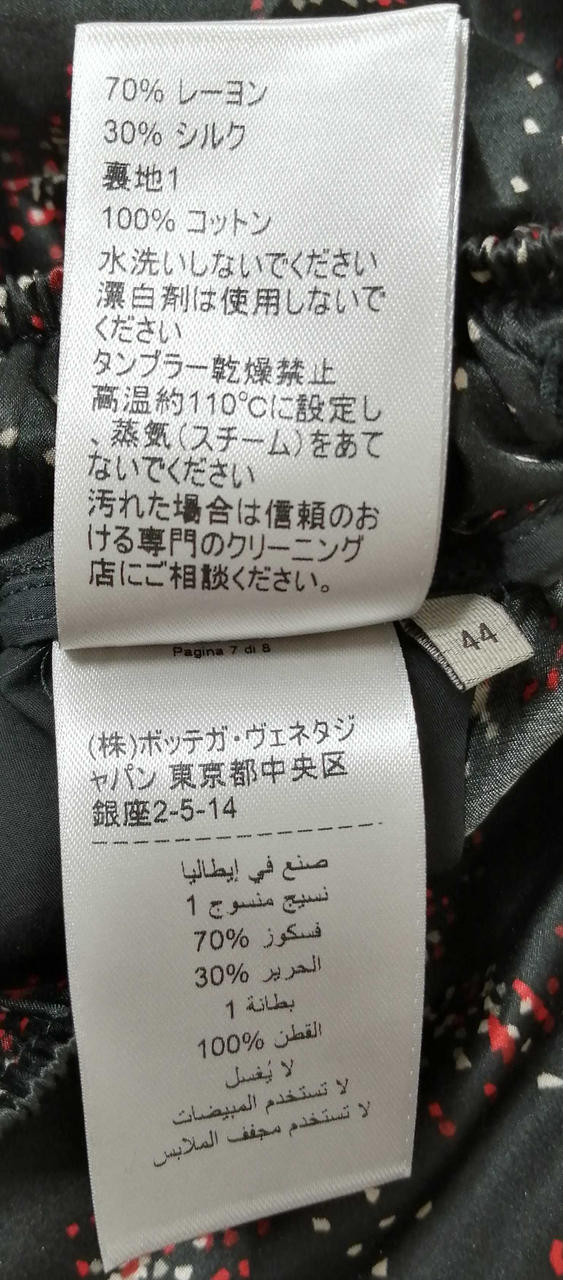 70% レーヨン
30% シルク
裏地1
100% コットン
水洗いしないでください
漂白剤は使用しないで
ください
タンブラー乾燥禁止
高温約110℃に設定し
、蒸気(スチーム)をあて
ないでください
汚れた場合は信頼のお
ける専門のクリーニング
店にご相談ください。
44
Pagina 7 di 8
(株)ボッテガ・ヴェネタジ
ャパン 東京都中央区
銀座2-5-14
صنع في إيطاليا
نسيج منسوج 1
فسكوز %70
الحرير %30
بطانة 1
القطن %100
لا يُغسل
لا تستخدم المبيضات
لا تستخدم مجفف الملابس